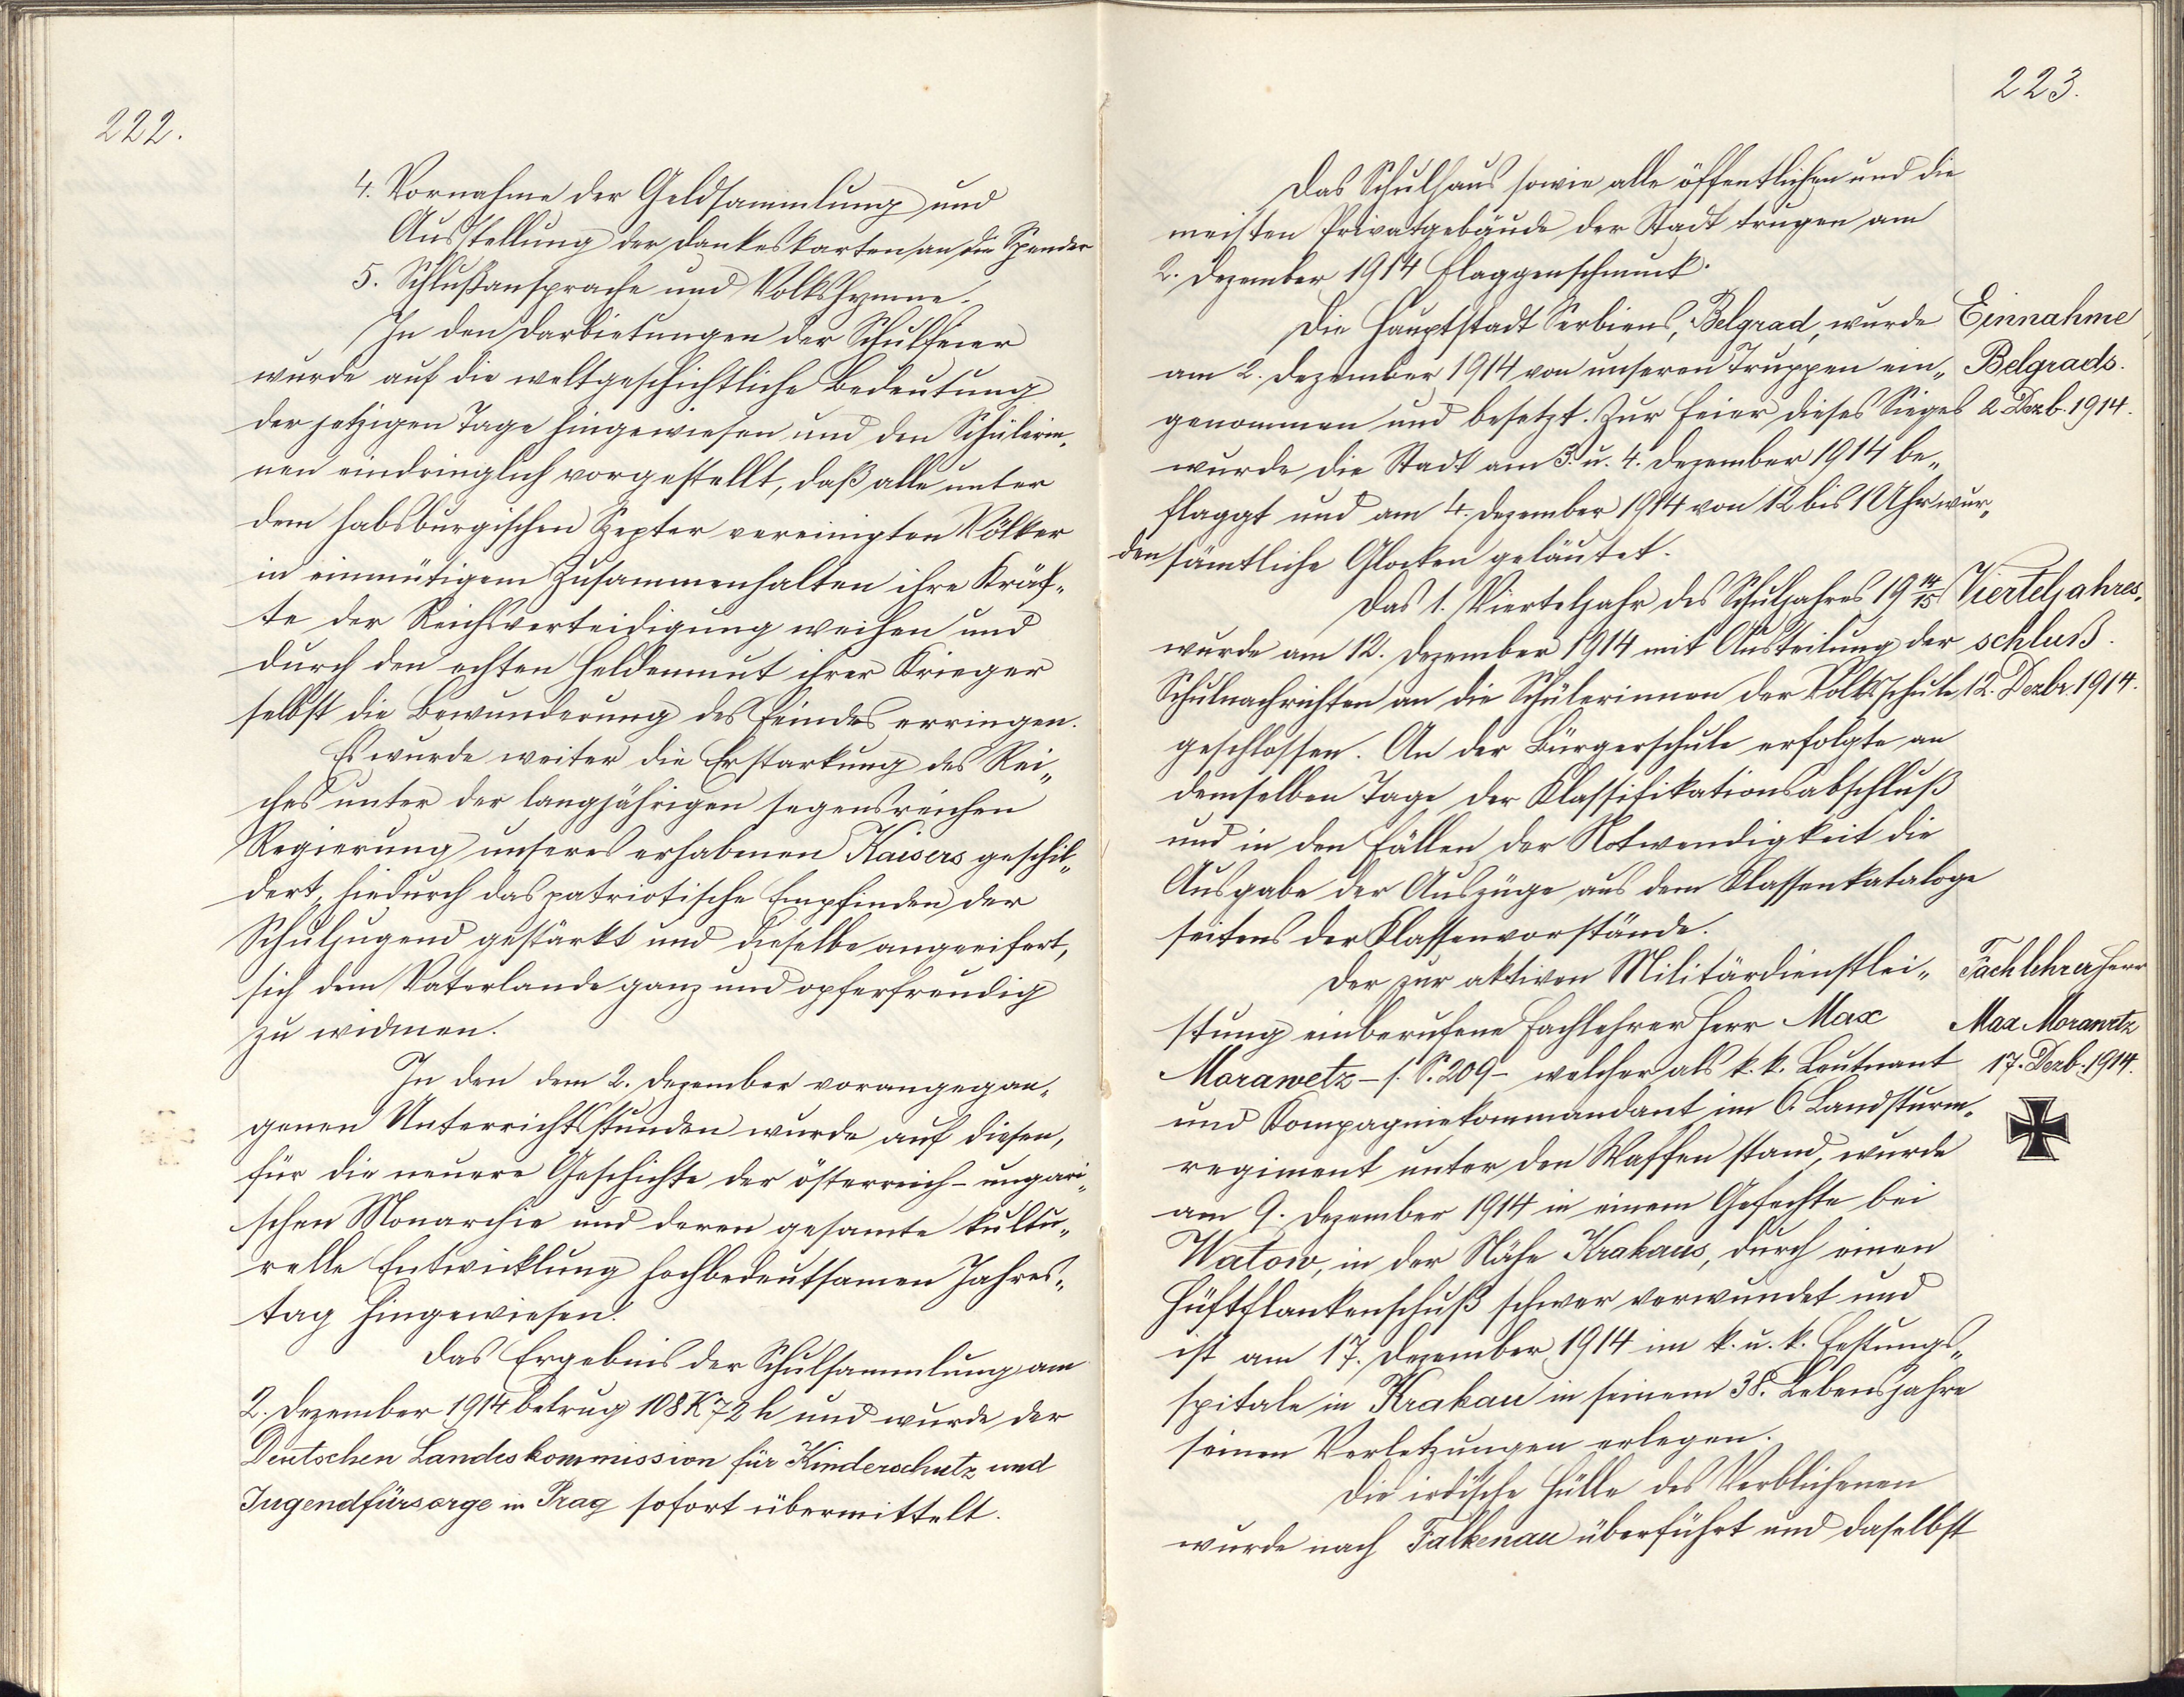 222.
4. Vornahme der Geldsammlung und
Ausstellung der Dankeskarten an die Spender
5. Schlußansprache und Volkshymne.
In den Darbietungen der Schulfeier
wurde auf die weltgeschichtliche Bedeutung
der jetzigen Tage hingewiesen und den Schülerin„
nen eindringlich vorgestellt, daß alle unter
dem habsburgischen Szepter vereinigten Völker
in einmütigem Zusammenhalten ihre Kräf„
te der Reichsverteidigung weihen und
durch den echten Heldenmut ihrer Krieger
selbst die Bewunderung des Feindes erringen.
Es wurde weiter die Erstarkung des Rei„
ches unter der langjährigen segensreichen
Regierung unseres erhabenen Kaisers geschil„
dert, hiedurch das patriotische Empfinden der
Schuljugend gestärkt und dieselbe angeeifert,
sich dem Vaterlande ganz und opferfreudig
zu widmen.
In den dem 2. Dezember vorangegan„
genen Unterrichtsstunden wurde auf diesen,
für die neuere Geschichte der österreich-ungari„
schen Monarchie und deren gesamte kultu„
relle Entwicklung hochbedeutsamen Jahres„
tag hingewiesen.
Das Ergebnis der Schulsammlung am
2. Dezember 1914 betrug 108 K 72 h und wurde der
Deutschen Landeskommission für Kinderschutz und
Jugendfürsorge in Prag sofort übermittelt.
223.
Das Schulhaus sowie alle öffentlichen und die
meisten Privatgebäude der Stadt trugen am
2. Dezember 1914 Flaggenschmuck.
Die Hauptstadt Serbiens, Belgrad, wurde
Einnahme
am 2. Dezember 1914 von unseren Truppen ein„
Belgrads.
genommen und besetzt. Zur Feier dieses Sieges
2. Dezb. 1914.
wurde die Stadt am 3. u. 4. Dezember 1914 be„
flaggt und am 4. Dezember 1914 von 12 bis 1 Uhr wur„
den sämtliche Glocken geläutet.
Das 1. Vierteljahr des Schuljahres 19 14/15
Vierteljahres„
wurde am 12. Dezember 1914 mit Austeilung der
schluß.
Schulnachrichten an die Schülerinnen der Volksschule
12. Dezbr. 1914.
geschlossen. An der Bürgerschule erfolgte an
demselben Tage der Klassifikationsabschluß
und in den Fällen der Notwendigkeit die
Ausgabe der Auszüge aus dem Klassenkataloge
seitens der Klassenvorstände.
Der zur aktiven Militärdienstlei„
Fachlehrer Herr
stung einberufene Fachlehrer Herr Max
Max Morawetz
Morawetz – s. S. 209 – welcher als k. k. Leutnant
17. Dezb. 1914.
und Kompagniekommandant im 6. Landsturm„
regiment unter den Waffen stand, wurde
am 9. Dezember 1914 in einem Gefechte bei
Watow, in der Nähe Krakaus, durch einen
Hüftflankenschuß schwer verwundet und
ist am 17. Dezember 1914 im k. u. k. Festungs„
spitale in Krakau in seinem 38. Lebensjahre
seinen Verletzungen erlegen.
Die irdische Hülle des Verblichenen
wurde nach Falkenau überführt und daselbst